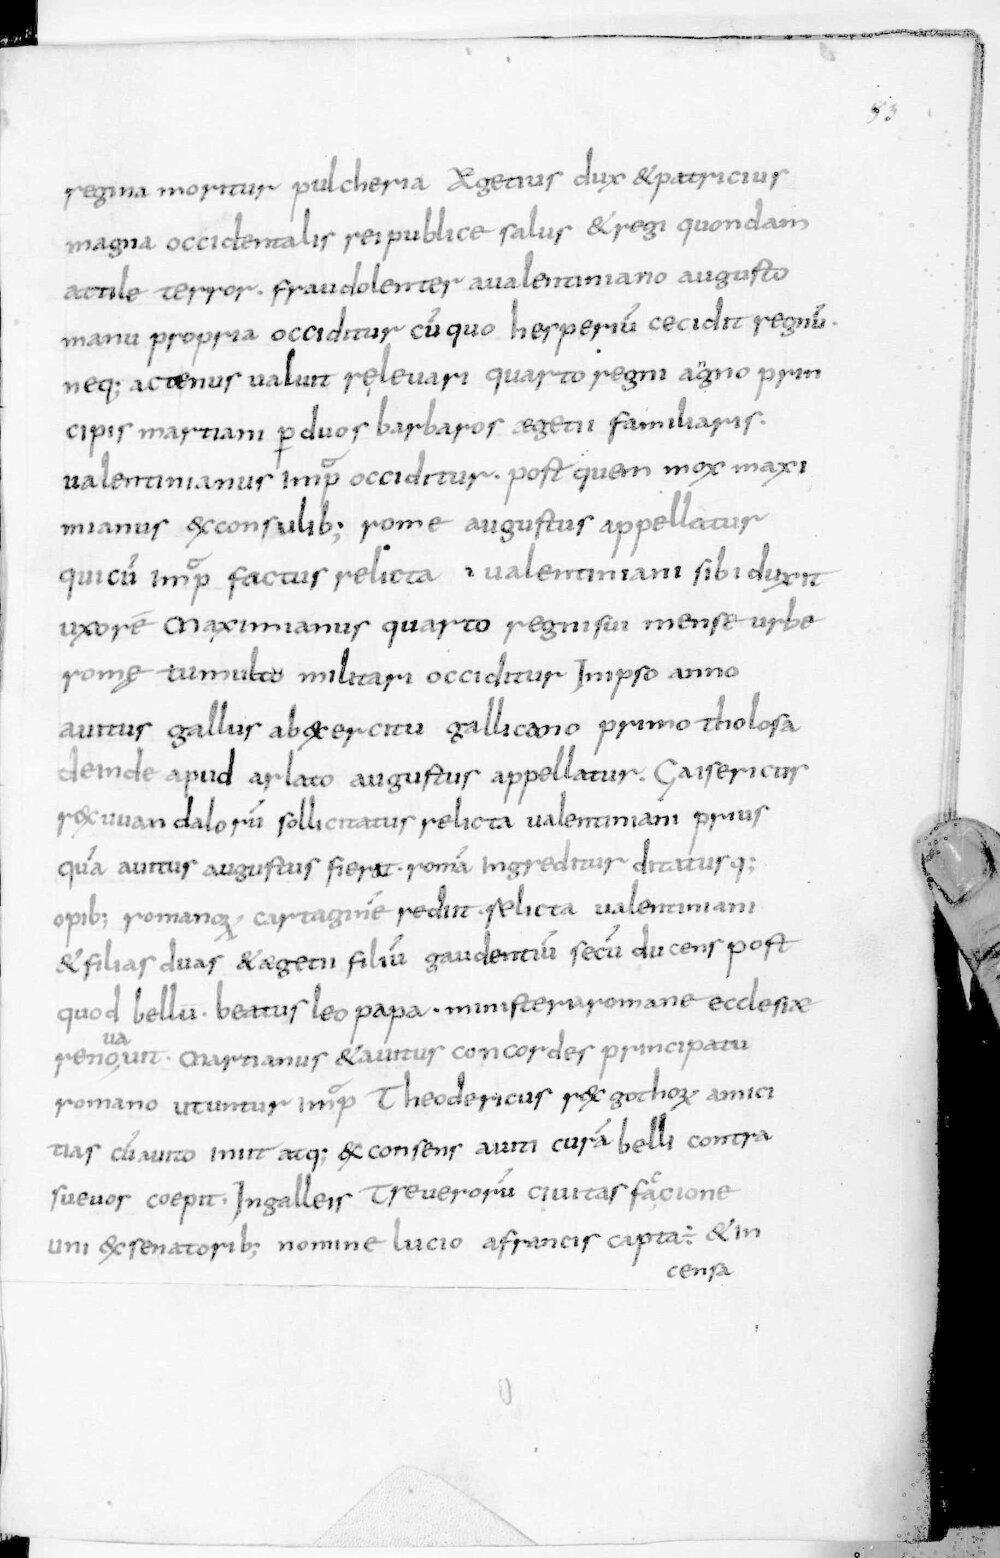 53
regina moritur pulcheria Ægetius dux & patricius
magna occidentalis rei publice salus & regi quondam
attile terror. fraudolenter aualentiniano augusto
manu propria occiditur cū quo hesperiū cecidit regnū.
neq; actenus valuit ręlevari quarto regni agno prin
cipis martiani ꝑ duos barbaros ægetii familiaris.
ualentinianus imp̄ occiditur. post quem mox maxi
mianus exconsulib; rome augustus appellatur
qui cū imp̄ factus relicta ualentiniani sibi duxit
uxorē Maximianus quarto regni sui mense urbe
romę tumulto militari occiditur In ipso anno
auitus gallus ab exercitu gallicano primo tholosa
deinde apud arlato augustus appellatur. Gaisericus
rex uuandalorū sollicitatus relicta ualentiniani prius
quā auitus augustus fierit. romā ingreditur ditatusq;
opib; romanoꝝ cartaginē rediit. relicta valentiniani
& filias duas & ægetii filiū gaudentiū secū ducens post
quod bellū. beatus leo papa. ministeria romane ecclesiæ
reno
ua
uit. Martianus & auitus concordes principatu
romano utuntur imp̄ Theodericus rex gothoꝝ amici
tias cū auito iniit atq; ex consens auiti curā belli contra
suevos coepit. In galleis Treverorū ciuitas facione
uni exsenatorib; nomine lucio a francis capta: & in
censa